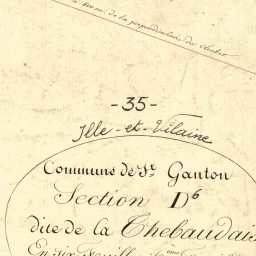 de la perpendiculaire du clocher
- 35 -
Ille-et-Vilaine
Commune de St. Ganton
Section D6
dite de la Chebaudais
En six Feuilles